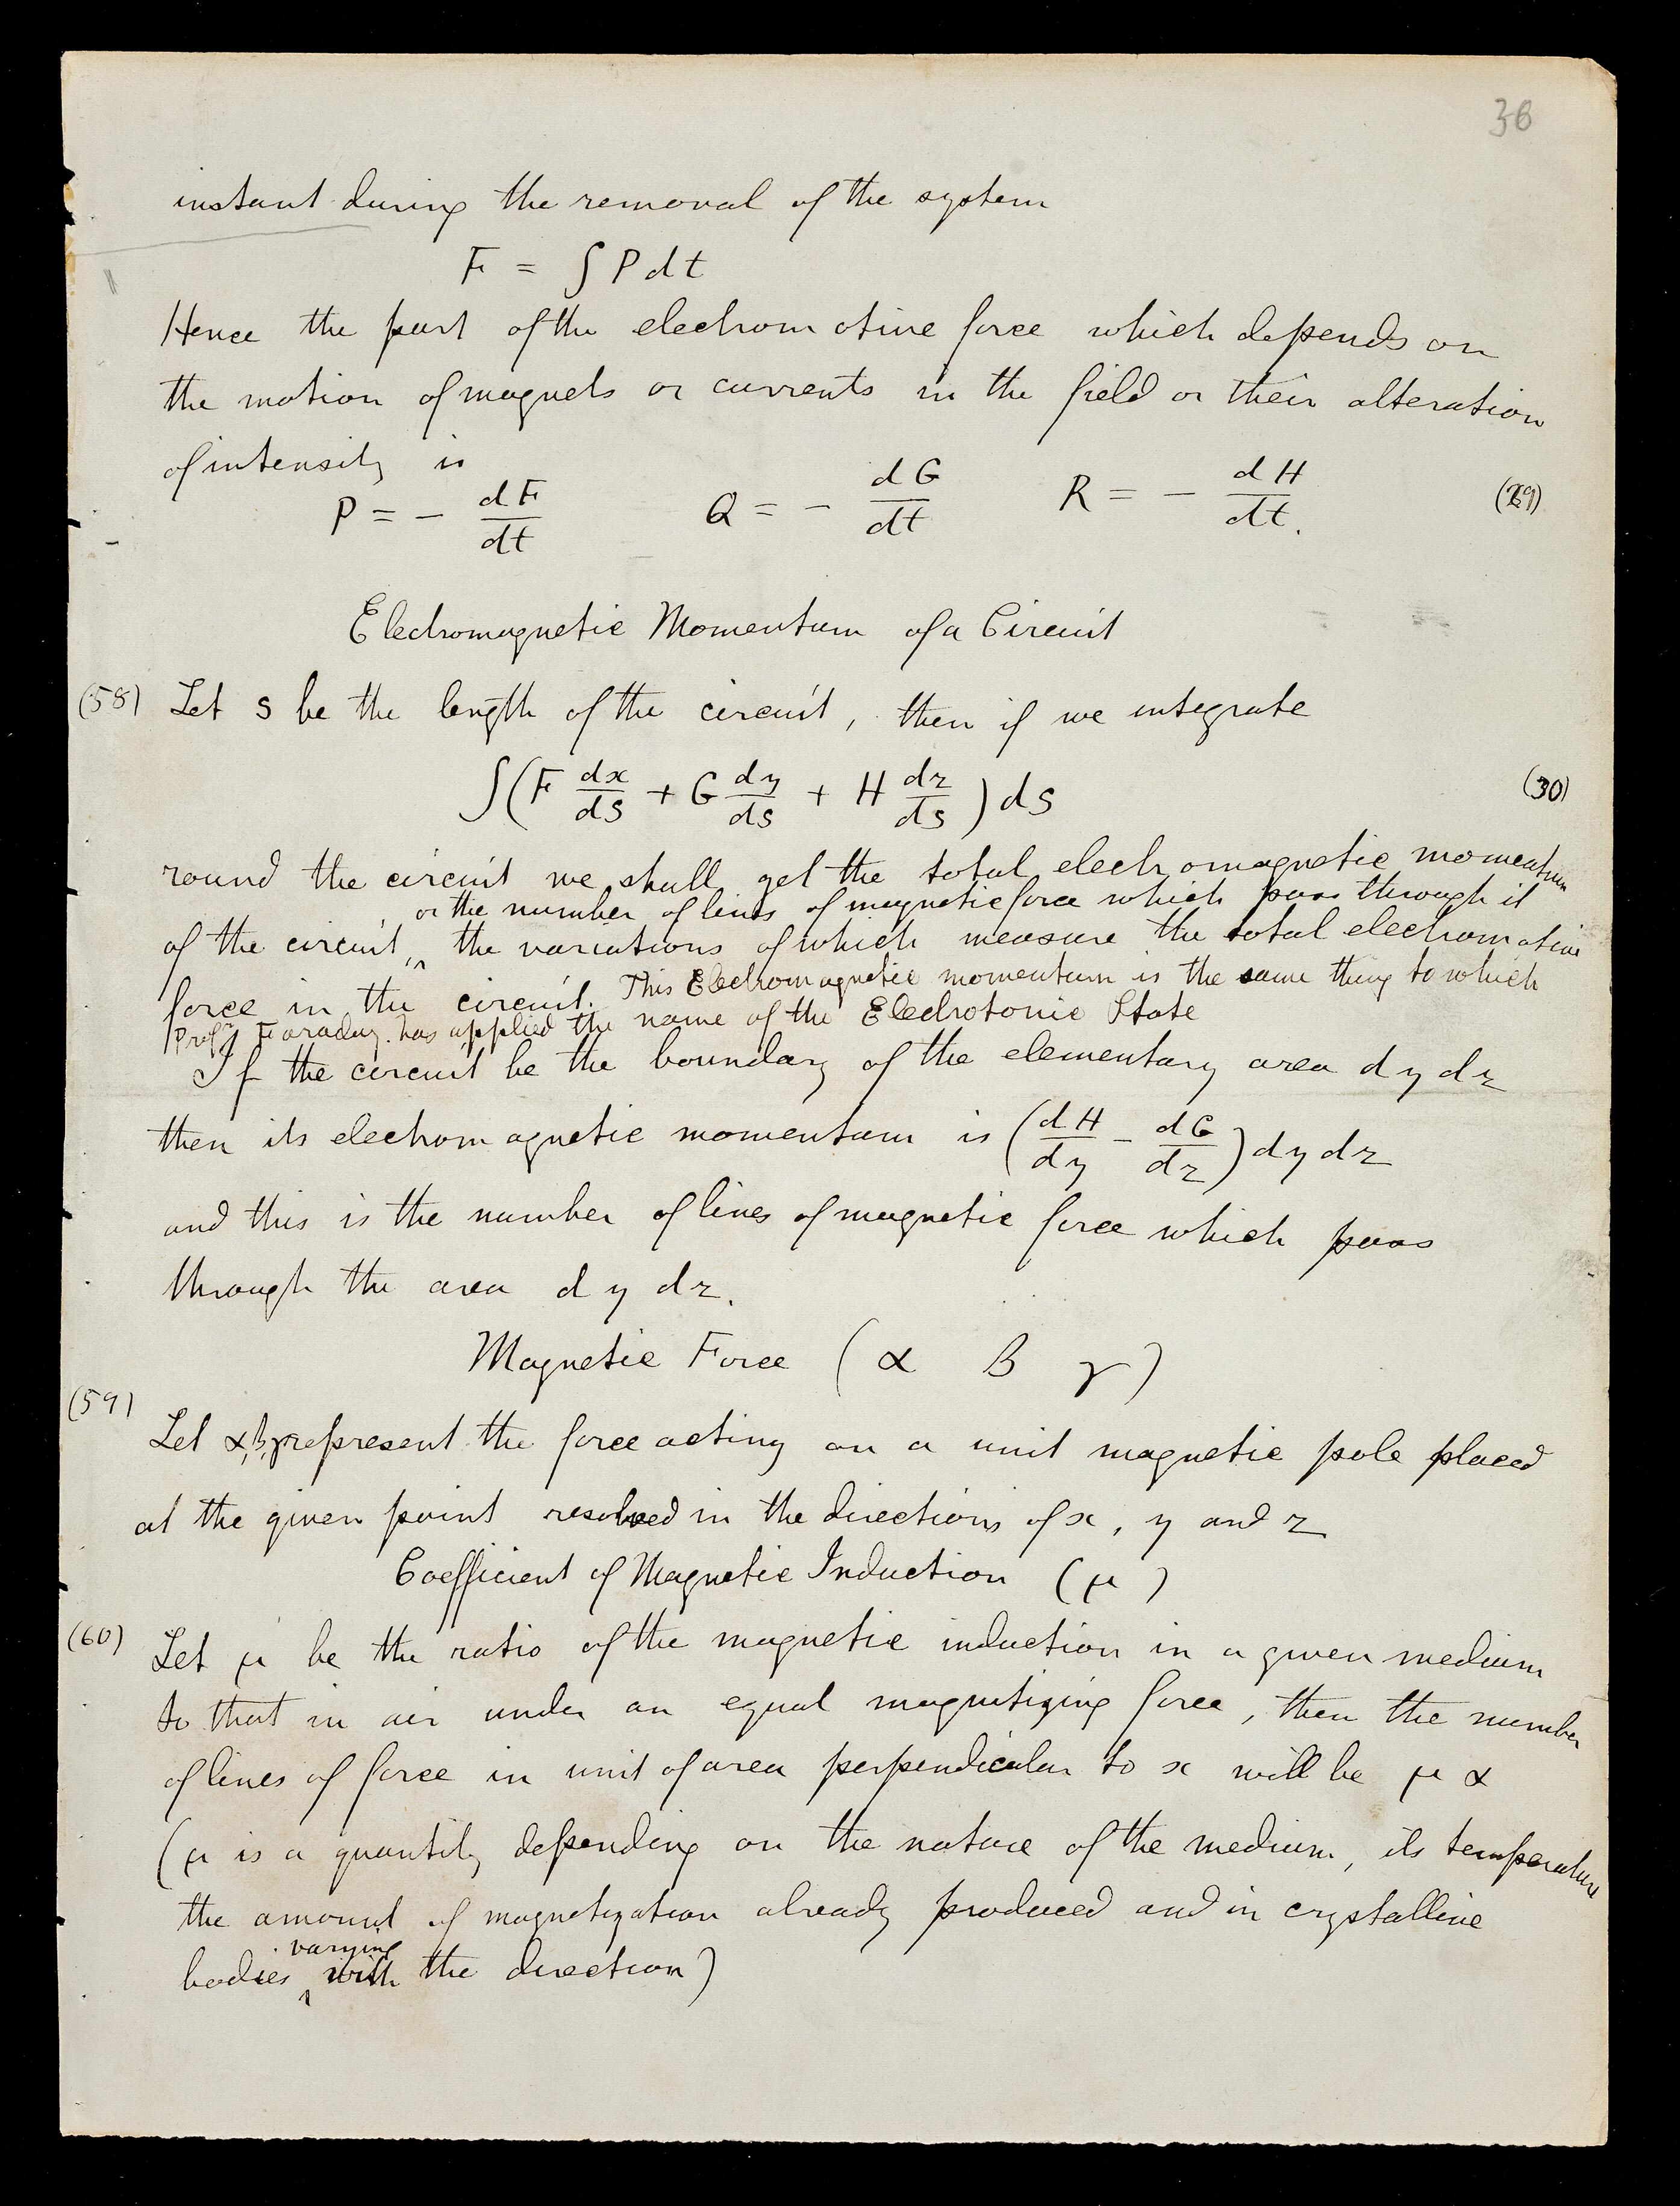 36
instant during the removal of the system
F = ∫ P dt
Hence the part of the electromotive force which depends on
the motion of magnets or currents in the field or their alteration
of intensity is
P = − dF/dt Q = − dG/dt R = − dH/dt. (29)
Electromagnetic Momentum of a Circuit
(58) Let s be the length of the circuit, then if we integrate
∫(F dx/ds + G dy/ds + H dz/ds) ds (30)
round the circuit we shall get the total electromagnetic momentum
or the number of lines of magnetic force which pass through it
of the circuit, ^ the variations of which measure the total electromotive
force in the circuit. This Electromagnetic momentum is the same thing to which
Profr Faraday has applied the name of the Electrotonic State
If the circuit be the boundary of the elementary area dy dz
then its electromagnetic momentum is (dH/dy − dG/dz) dy dz
and this is the number of lines of magnetic force which pass
through the area dy dz.
Magnetic Force (α β γ)
(59)
Let α, β, γ represent the force acting on a unit magnetic pole placed
at the given point resolved in the directions of x, y and z
Coefficient of Magnetic Induction (μ)
(60) Let μ be the ratio of the magnetic induction in a given medium
to that in air under an equal magnetizing force, then the number
of lines of force in unit of area perpendicular to x will be μ α
(μ is a quantity depending on the nature of the medium, its temperature
the amount of magnetization already produced and in crystalline
varying
bodies ^ with the direction)